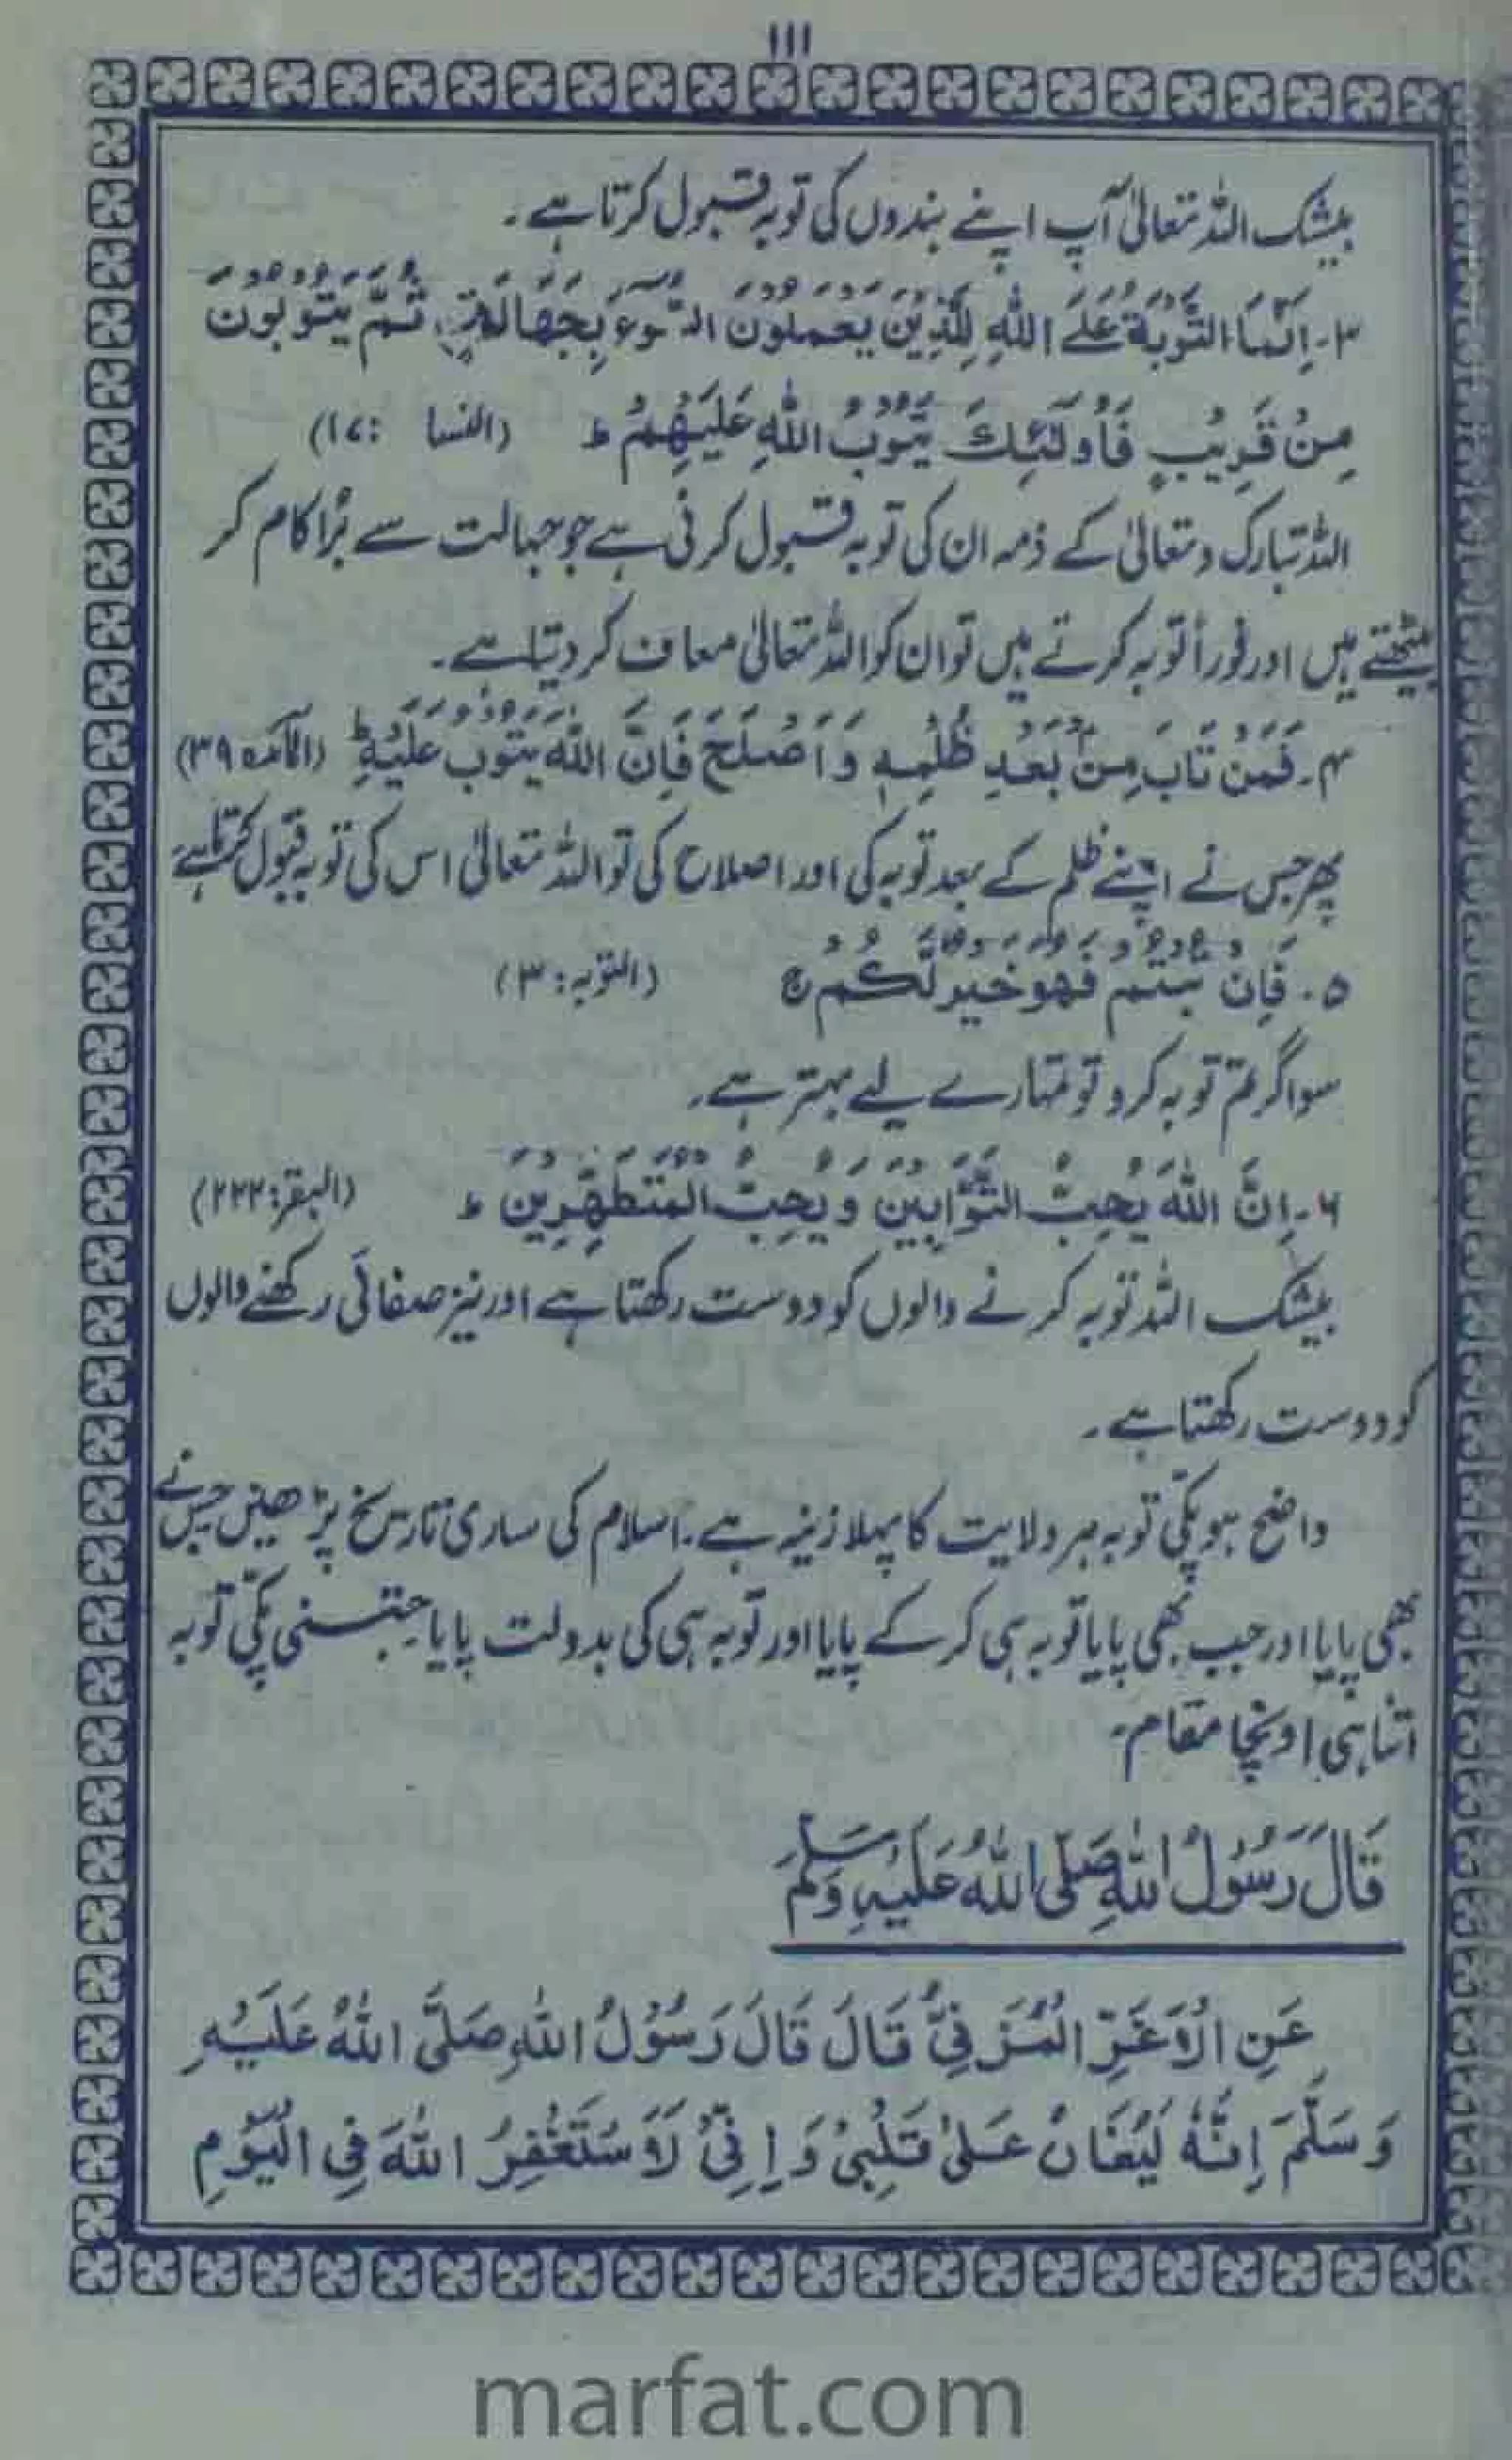 ۱۱۱
بیشک اللہ تعالیٰ آپ اپنے بندوں کی توبہ قبول کرتا ہے۔
۳۔ اِنَّمَا التَّوْبَةُ عَلَى اللّٰهِ لِلَّذِيْنَ يَعْمَلُوْنَ السُّوْٓءَ بِجَهَالَةٍ ثُمَّ يَتُوْبُوْنَ
مِنْ قَرِيْبٍ فَاُولٰٓئِكَ يَتُوْبُ اللّٰهِ عَلَيْهِمْ ط (النسا :۱۷)
اللہ تبارک و تعالیٰ کے ذمہ ان کی توبہ قبول کرنی ہے جو جہالت سے بُرا کام کر
بیٹھتے ہیں اور فوراً توبہ کرتے ہیں تو ان کو اللہ تعالیٰ معاف کر دیتا ہے۔
۴۔ فَمَنْ تَابَ مِنْۢ بَعْدِ ظُلْمِهٖ وَ اَصْلَحَ فَاِنَّ اللّٰهَ يَتُوْبُ عَلَيْهِ ط (المآئدہ ۳۹)
پھر جس نے اپنے ظلم کے بعد توبہ کی اور اصلاح کی تو اللہ تعالیٰ اس کی توبہ قبول کرتا ہے
۵۔ فَاِنْ تُبْتُمْ فَهُوَ خَيْرٌ لَّكُمْ ج (التوبہ:۳)
سو اگر تم توبہ کرو تو تمہارے لیے بہتر ہے۔
۶۔ اِنَّ اللّٰهَ يُحِبُّ التَّوَّابِيْنَ وَ يُحِبُّ الْمُتَطَهِّرِيْنَ ط (البقر:۲۲۲)
بیشک اللہ توبہ کرنے والوں کو دوست رکھتا ہے اور نیز صفائی رکھنے والوں
کو دوست رکھتا ہے۔
واضح ہو پکّی توبہ ہر ولایت کا پہلا زینہ ہے۔ اسلام کی ساری تاریخ پڑھیں جس نے
بھی پایا اور جب بھی پایا توبہ ہی کر کے پایا اور توبہ ہی کی بدولت پایا جتنی پکّی توبہ
اتنا ہی اونچا مقام۔
قَالَ رَسُوْلُ اللّٰهِ صَلَّى اللّٰهُ عَلَيْهِ وَسَلَّمَ
عَنِ الْاَغَرِّ الْمُزَنِيِّ قَالَ قَالَ رَسُوْلُ اللّٰهِ صَلَّى اللّٰهُ عَلَيْهِ
وَسَلَّمَ اِنَّهٗ لَيُغَانُ عَلٰى قَلْبِيْ وَ اِنِّيْ لَاَسْتَغْفِرُ اللّٰهَ فِي الْيَوْمِ
marfat.com